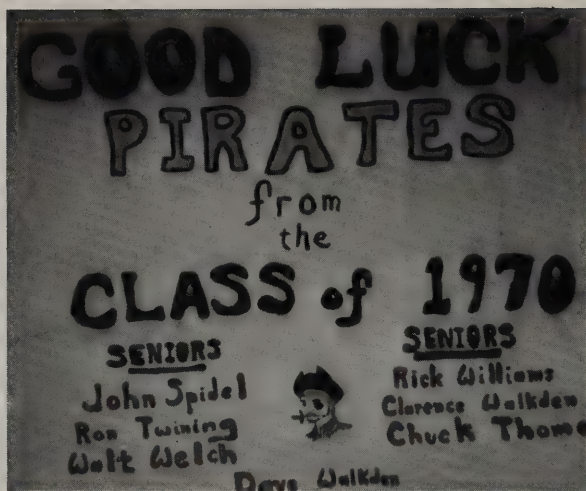 GOOD LUCK
PIRATES
from
the
CLASS of 1970
SENIORS
John Spidel
Ron Twining
Walt Welch
SENIORS
Rick Williams
Clarence Walkden
Chuck Thome
Dave Walkden